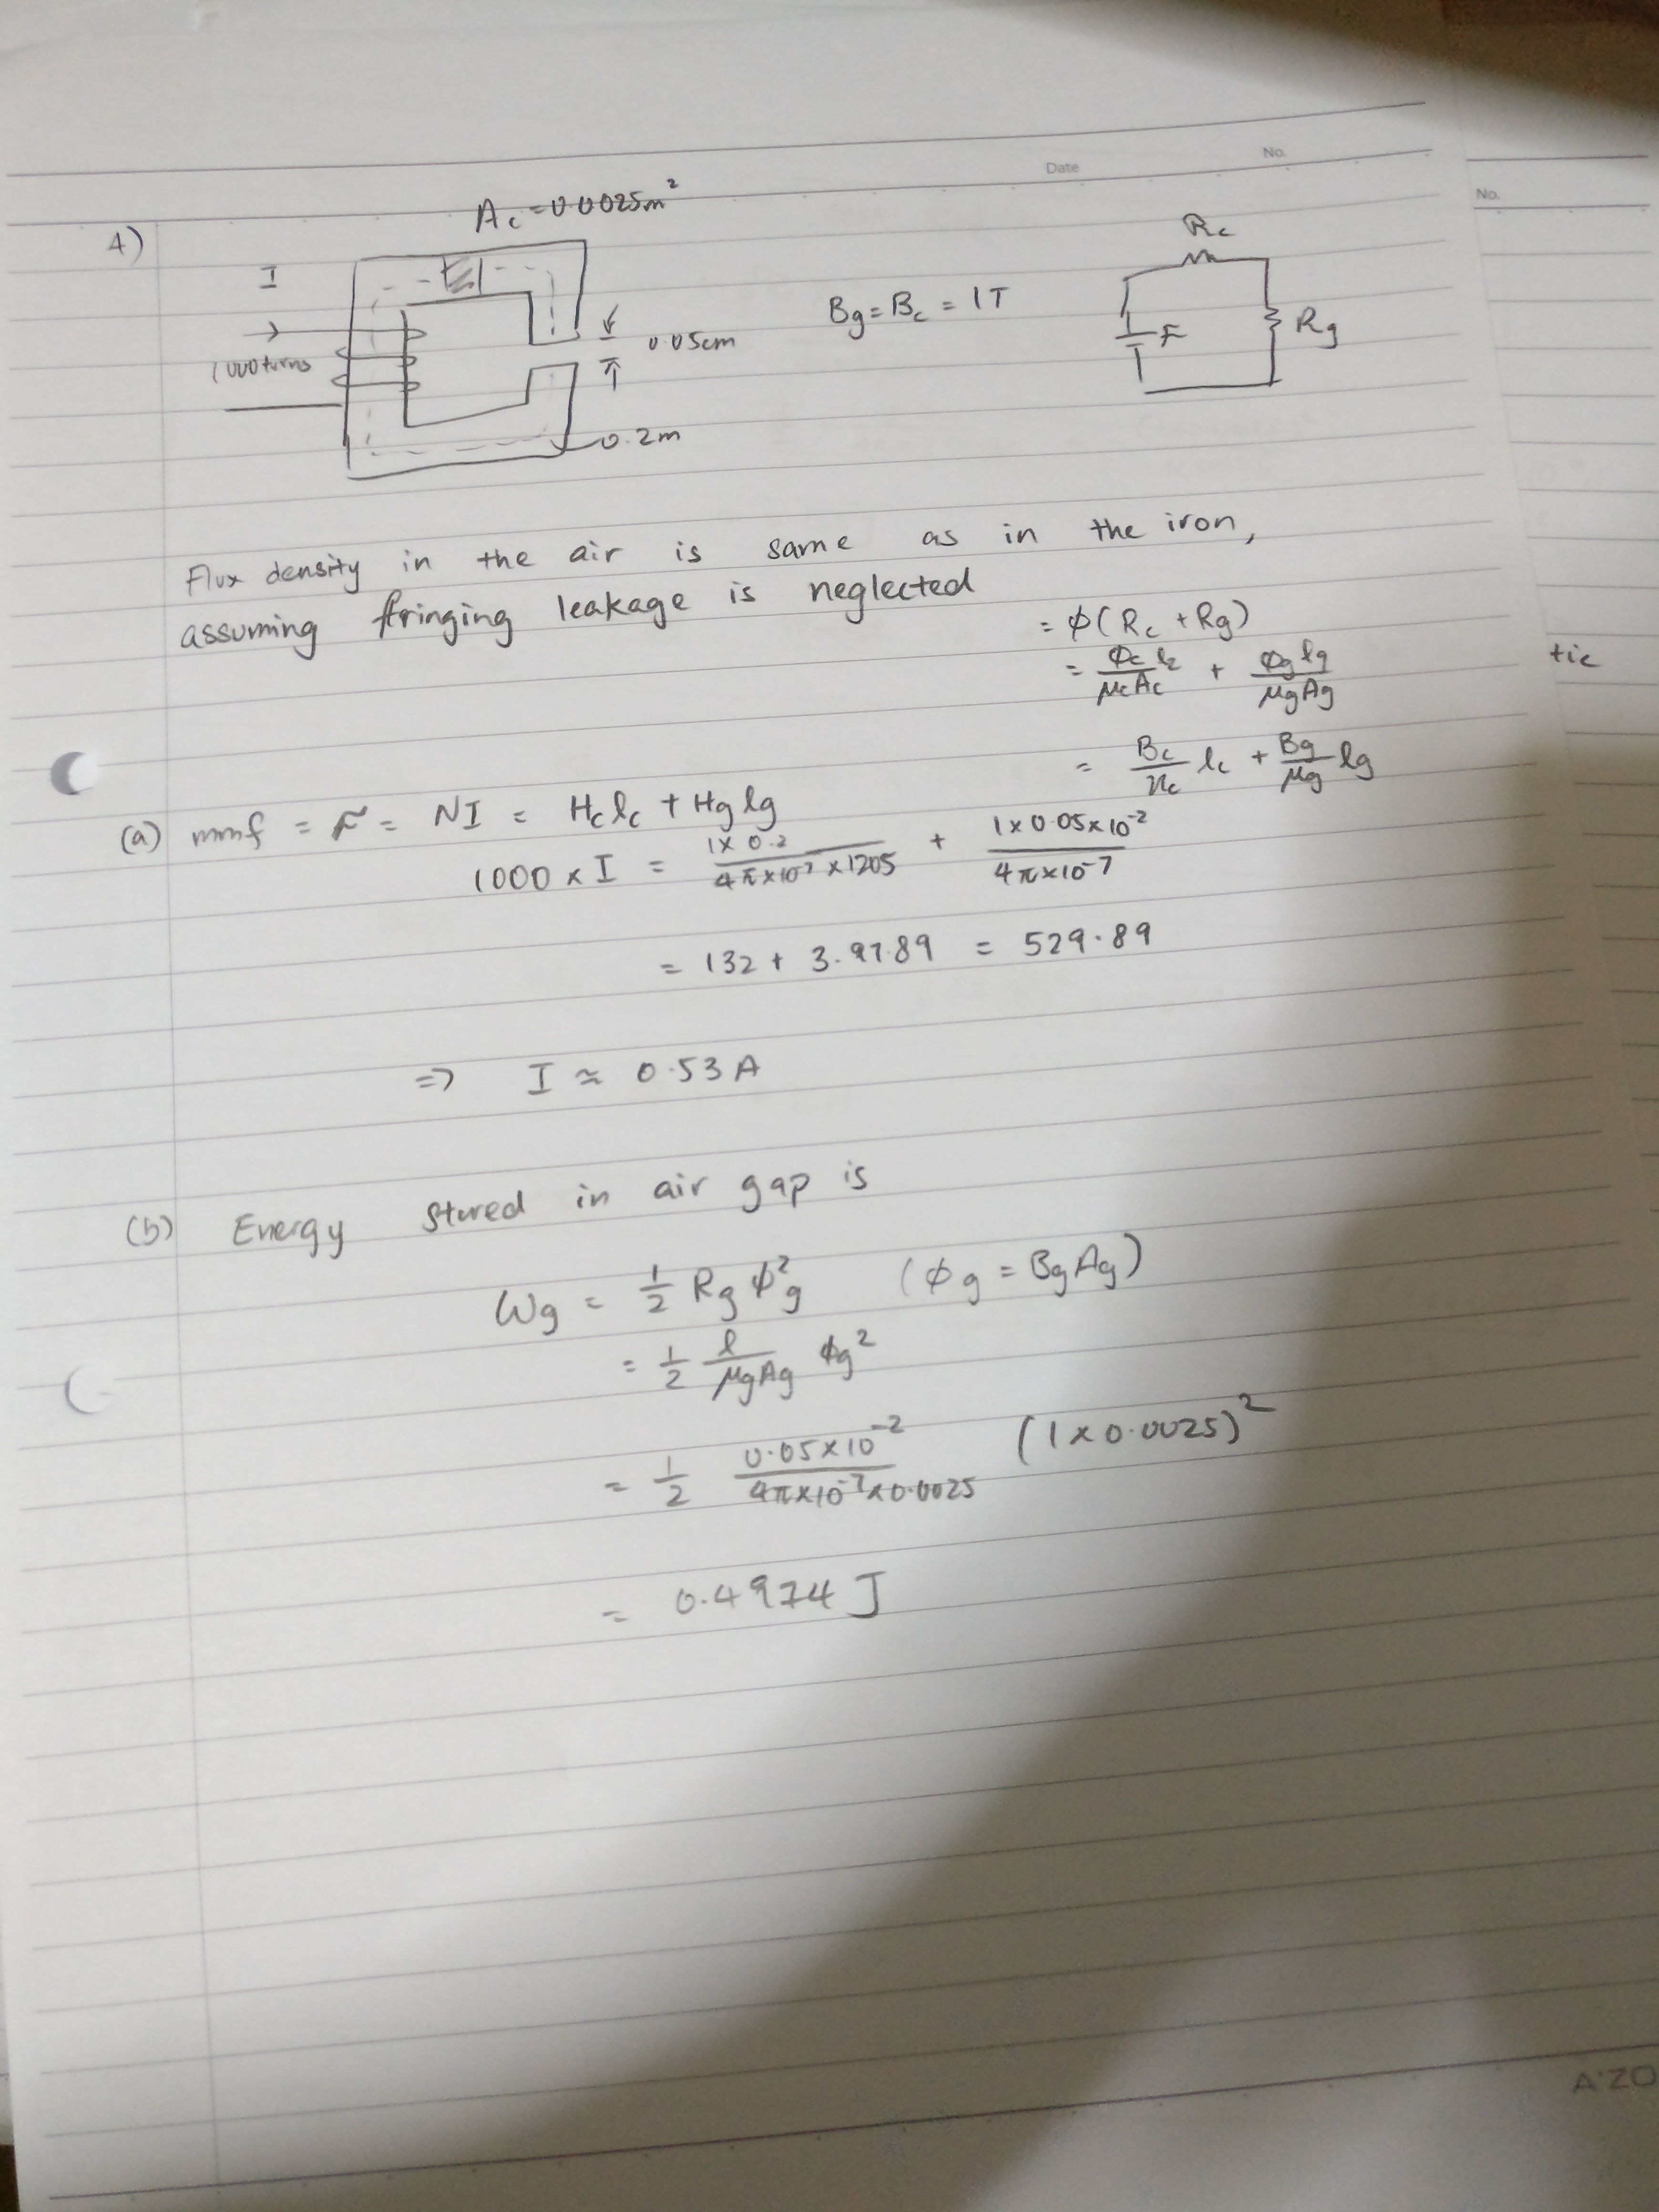 Date No.
No.
4)
A_c = 0.0025m²
I
1000 turns
0.05cm
0.2m
B_g = B_c = 1T
R_c
F
R_g
Flux density in the air is same as in the iron,
assuming fringing leakage is neglected
= φ(R_c + R_g)
= φ_c l_c / μ_c A_c + φ_g l_g / μ_g A_g
tic
= B_c / μ_c l_c + B_g / μ_g l_g
(a) mmf = F = NI = H_c l_c + H_g l_g
1000 × I = 1 × 0.2 / 4π×10⁻⁷ × 1205 + 1 × 0.05×10⁻² / 4π×10⁻⁷
= 132 + 3.9789 = 529.89
⇒ I ≈ 0.53A
(b) Energy stored in air gap is
W_g = 1/2 R_g φ_g² (φ_g = B_g A_g)
= 1/2 l / μ_g A_g φ_g²
= 1/2 0.05×10⁻² / 4π×10⁻⁷×0.0025 (1×0.0025)²
= 0.4974 J
A'ZO